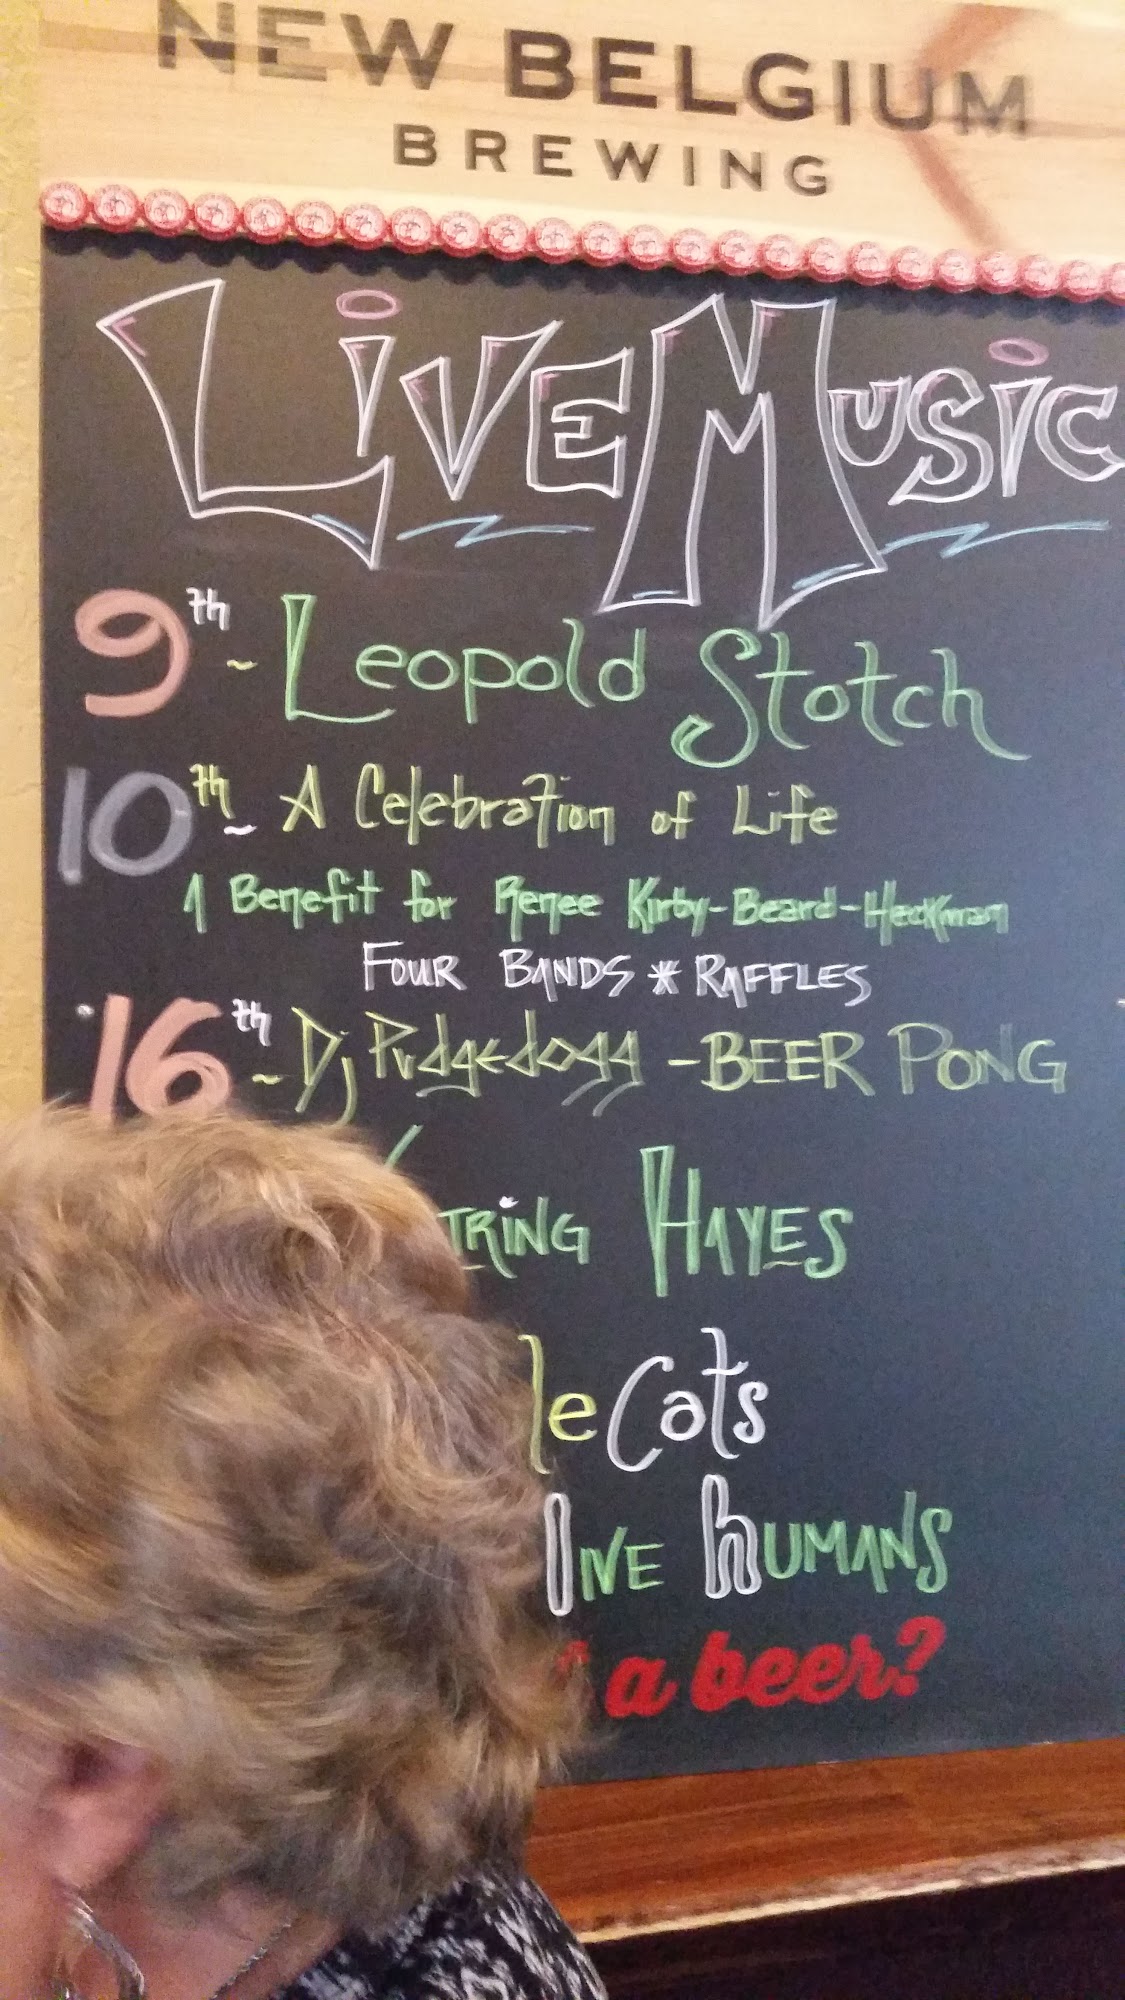 NEW BELGIUM
BREWING
LiVE MUSiC
9th ~ Leopold Stotch
10th ~ A Celebration of Life
A Benefit for Renee Kirby-Beard-Heckman
FOUR BANDS * RAFFLES
16th ~ Dj Pudgedogg - BEER PONG
TRiNG HAYES
le Cats
live humans
a beer?